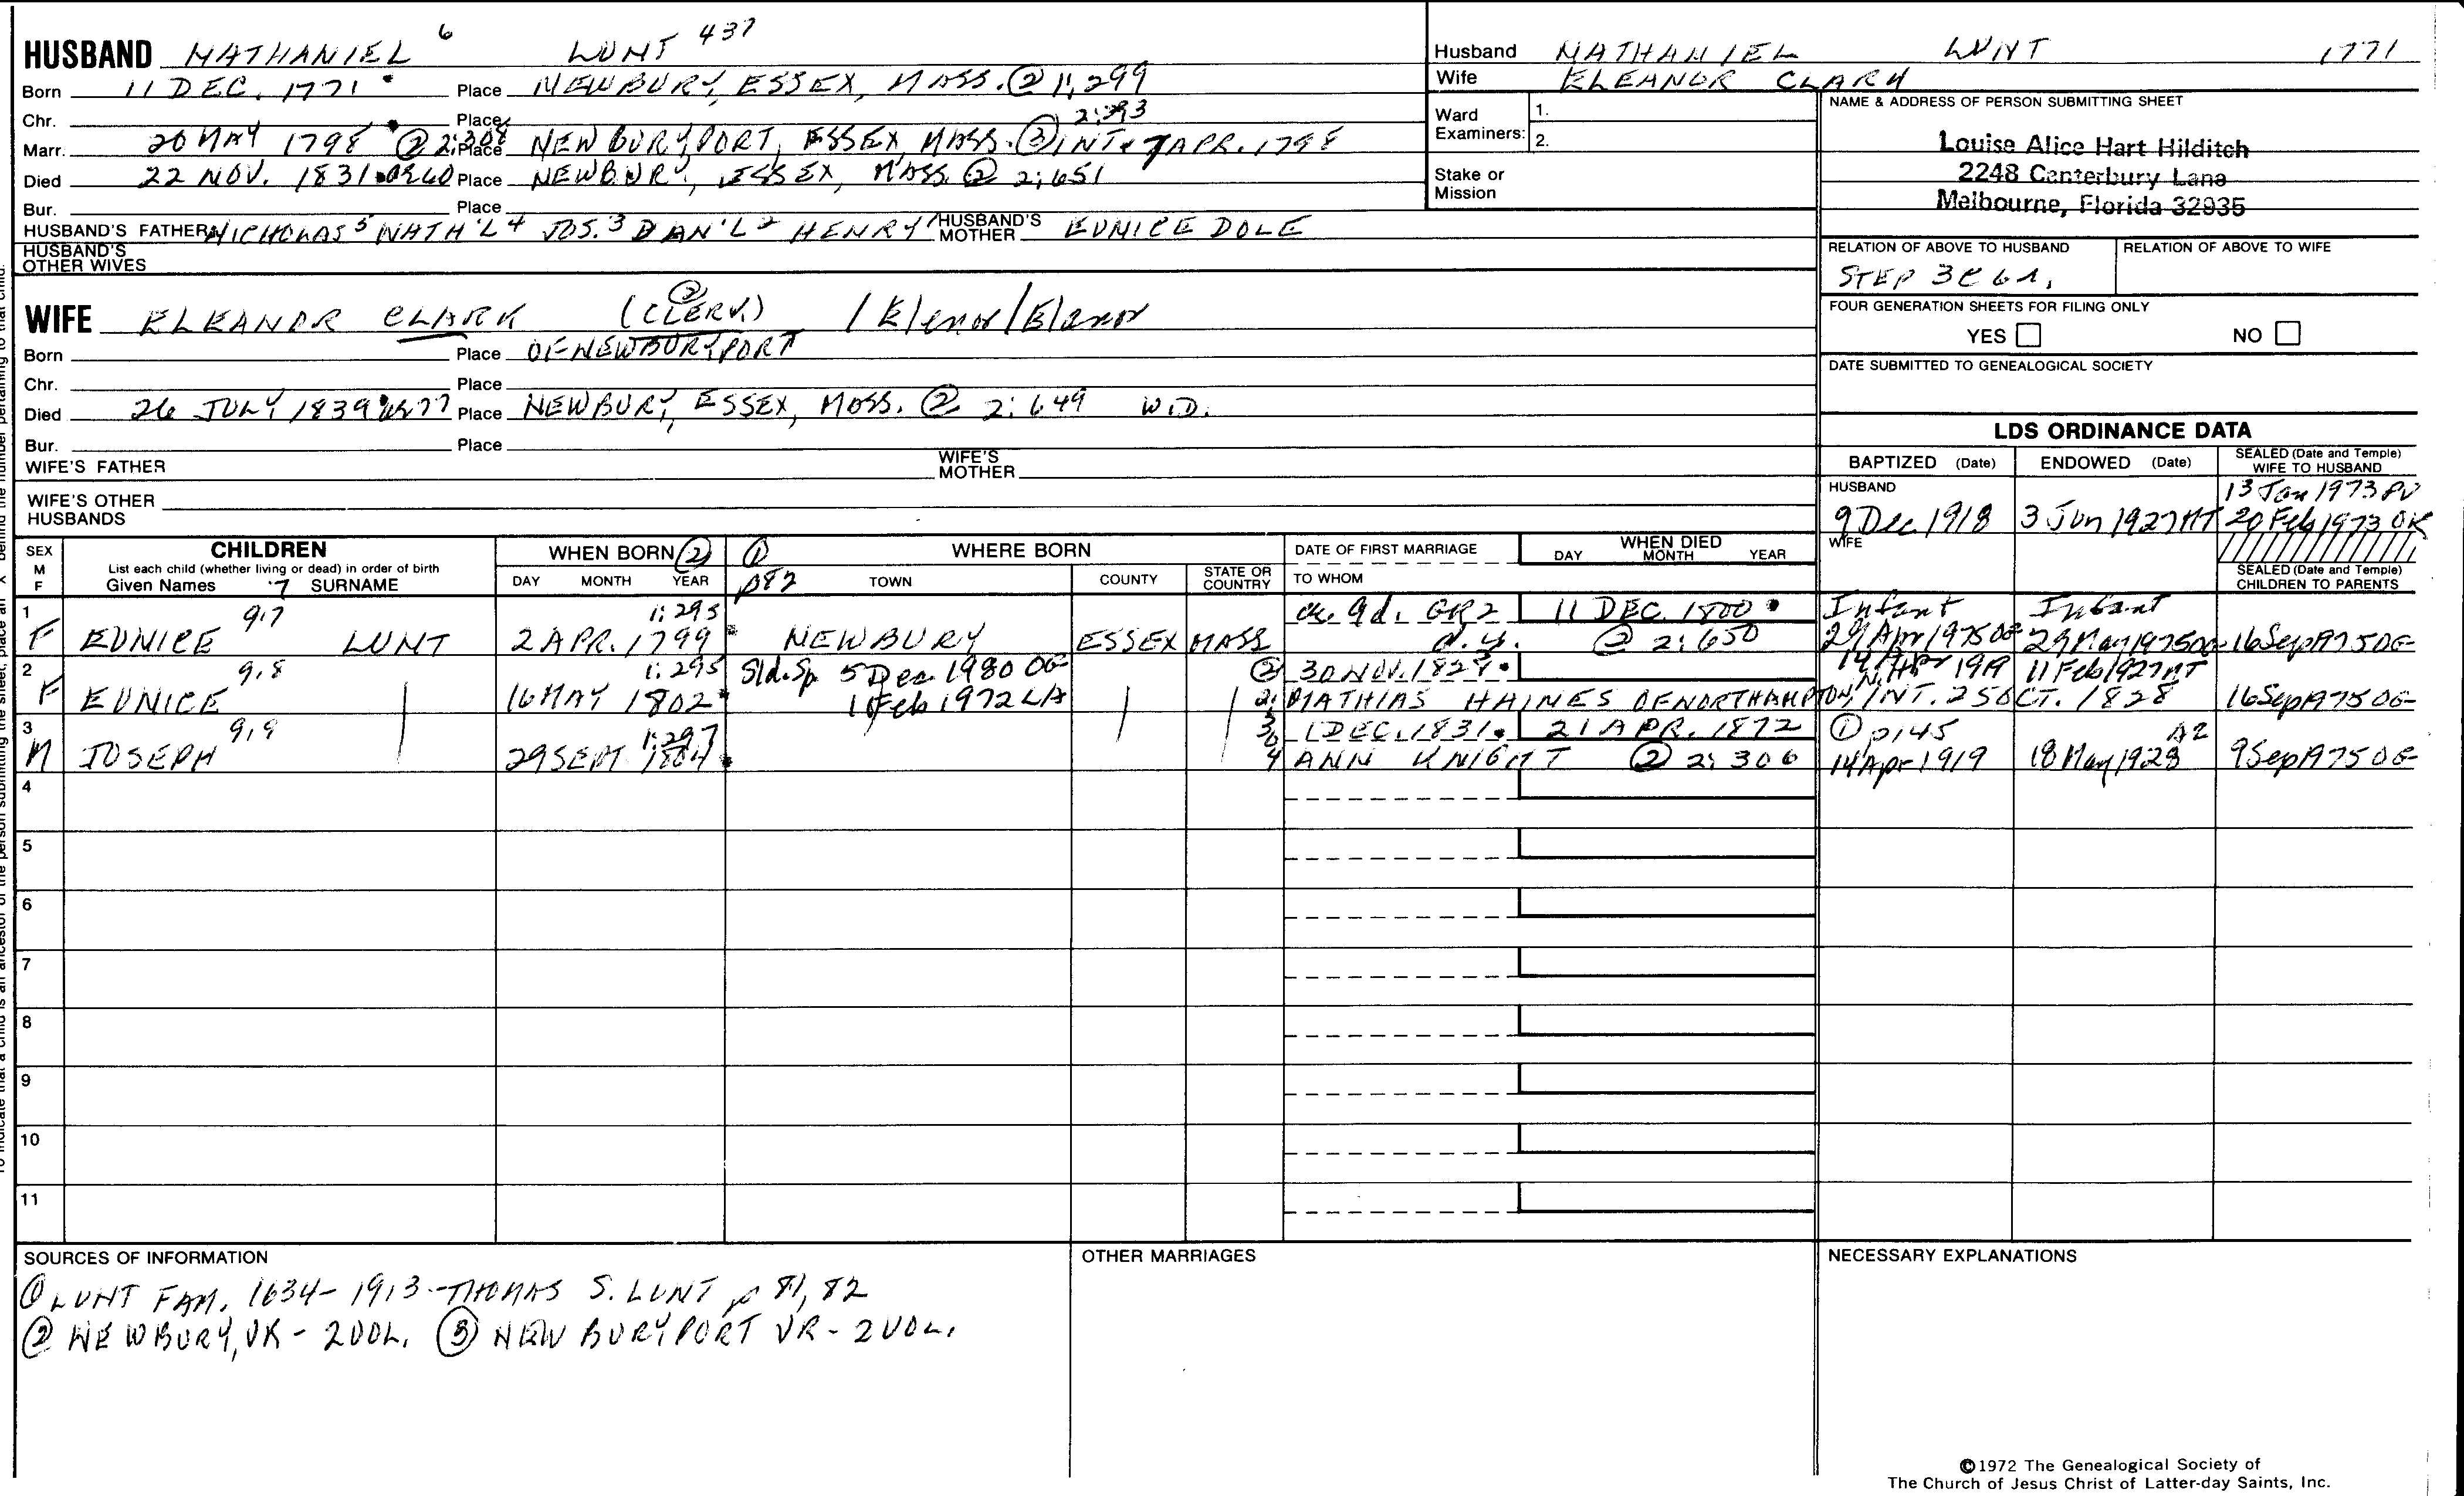 HUSBAND NATHANIEL 6 LUNT 437
Born 11 DEC. 1771 Place NEWBURY, ESSEX, MASS. ② 1;299
Chr. Place 2:393
Marr. 20 MAY 1798 @ 2:308 Place NEWBURYPORT, ESSEX, MASS. ③ INT. 7 APR. 1798
Died 22 NOV. 1831 Place NEWBURY, ESSEX, MASS. ② 2;651
Bur. Place
HUSBAND'S FATHER NICHOLAS 5 NATH'L 4 JOS. 3 DAN'L 2 HENRY 1 HUSBAND'S MOTHER EUNICE DOLE
HUSBAND'S OTHER WIVES
WIFE ELEANOR CLARK (CLERK) ② /Elenor/Elanor
Born Place OF NEWBURYPORT
Chr. Place
Died 26 JULY 1839 Place NEWBURY, ESSEX, MASS. ② 2:649 WID.
Bur. Place
WIFE'S FATHER WIFE'S MOTHER
WIFE'S OTHER HUSBANDS
Husband NATHANIEL LUNT 1771
Wife ELEANOR CLARK
Ward Examiners: 1.
2.
Stake or Mission
NAME & ADDRESS OF PERSON SUBMITTING SHEET
Louise Alice Hart Hilditch
2248 Canterbury Lane
Melbourne, Florida 32935
RELATION OF ABOVE TO HUSBAND RELATION OF ABOVE TO WIFE
STEP 3C
FOUR GENERATION SHEETS FOR FILING ONLY
YES NO
DATE SUBMITTED TO GENEALOGICAL SOCIETY
LDS ORDINANCE DATA
BAPTIZED (Date) ENDOWED (Date) SEALED (Date and Temple) WIFE TO HUSBAND
HUSBAND 13 Jan 1973 PV
9 Dec 1918 3 Jun 1927 20 Feb 1973 OK
WIFE
SEALED (Date and Temple) CHILDREN TO PARENTS
SEX M F CHILDREN WHEN BORN ② ① WHERE BORN DATE OF FIRST MARRIAGE WHEN DIED
List each child (whether living or dead) in order of birth
Given Names 7 SURNAME DAY MONTH YEAR p82 TOWN COUNTY STATE OR COUNTRY TO WHOM DAY MONTH YEAR
1 917 1:295 GR2 11 DEC. 1800 Infant Infant
F EUNICE LUNT 2 APR. 1799 NEWBURY ESSEX MASS d.y. ② 2:650 29 Apr 1975 OG 29 May 1975 OG 16 Sep 1975 OG
2 918 1:295 Sld.Sp 5 Dec 1980 OG ② 30 NOV. 1828 14 Apr 1919 11 Feb 1927
F EUNICE 16 MAY 1802 1 Feb 1972 LA MATHIAS HAINES OF NORTHAMPTON, N.H. INT. 25 OCT. 1828 16 Sep 1975 OG
3 919 1:297 1 DEC. 1831 21 APR. 1872 ① p145 AZ
M JOSEPH 29 SEPT 1804 ANN KNIGHT ② 2:306 14 Apr 1919 18 May 1928 9 Sep 1975 OG
4
5
6
7
8
9
10
11
SOURCES OF INFORMATION OTHER MARRIAGES NECESSARY EXPLANATIONS
① LUNT FAM. 1634-1913 - THOMAS S. LUNT p 81, 82
② NEWBURY, VR - 2 VOL. ③ NEWBURYPORT VR - 2 VOL.
©1972 The Genealogical Society of
The Church of Jesus Christ of Latter-day Saints, Inc.